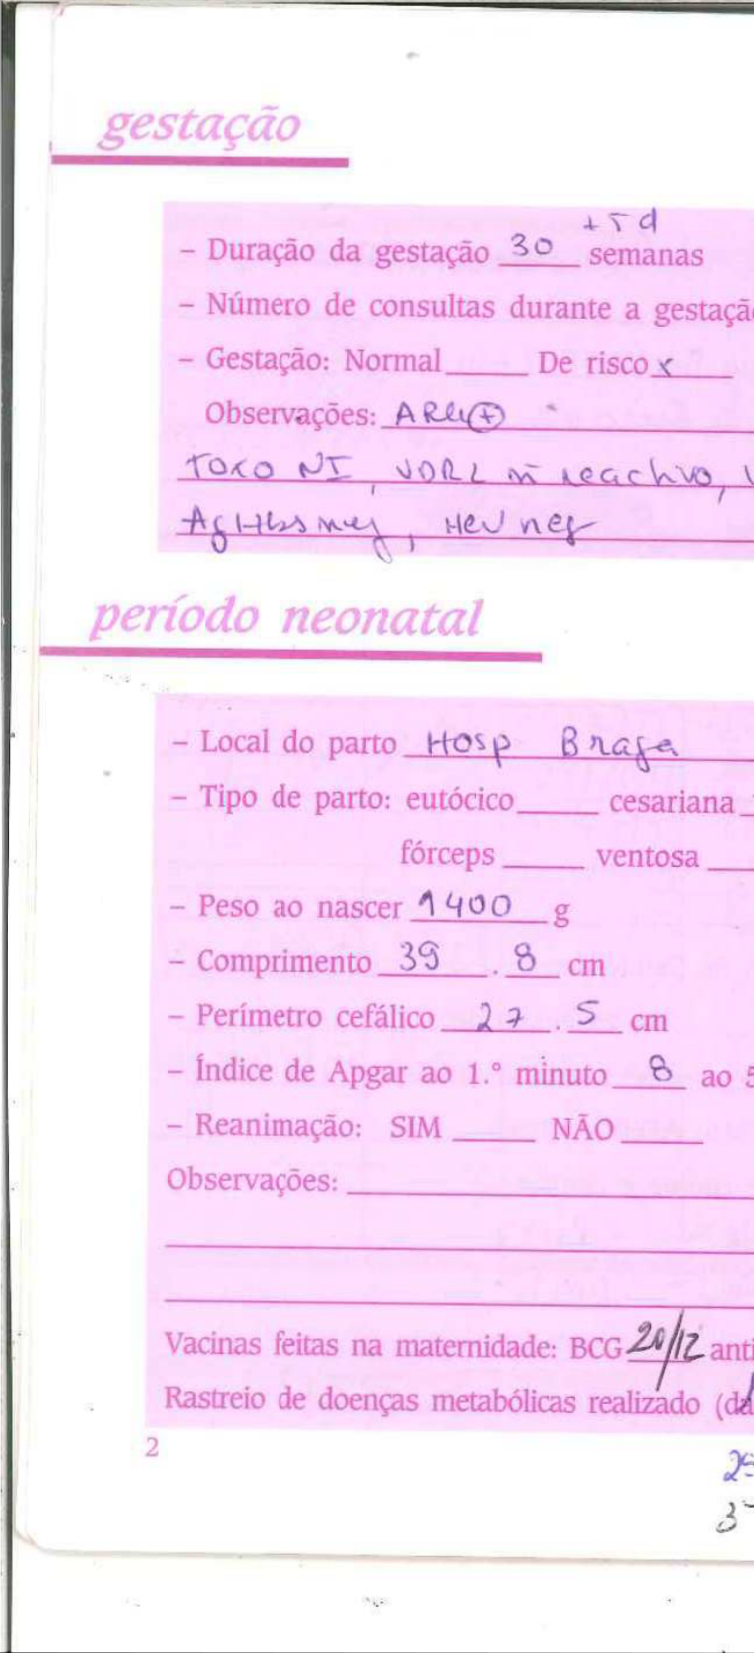 gestação
+5 d
– Duração da gestação 30 semanas
– Número de consultas durante a gestaçã
– Gestação: Normal____ De risco x
Observações: ARh(+)
TOXO NI, VDRL ñ reactivo, V
AgHbs neg, HCV neg
período neonatal
– Local do parto Hosp Braga
– Tipo de parto: eutócico____ cesariana
fórceps____ ventosa____
– Peso ao nascer 1400 g
– Comprimento 39.8 cm
– Perímetro cefálico 27.5 cm
– Índice de Apgar ao 1.º minuto 8 ao 5
– Reanimação: SIM____ NÃO____
Observações:
Vacinas feitas na maternidade: BCG 20/12 anti
Rastreio de doenças metabólicas realizado (da
2